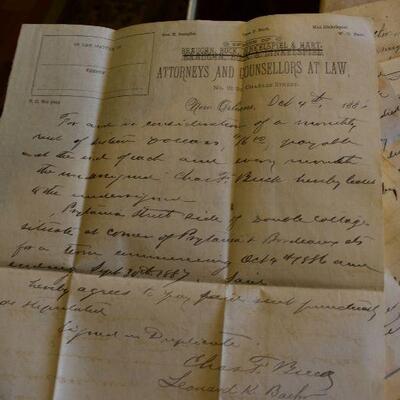 IN THE MATTER OF
VERSUS
P. O. Box
OFFICE OF
BRAUGHN, BUCK, DINKELSPIEL & HART,
ATTORNEYS AND COUNSELLORS AT LAW,
CHARLES STREET.
New Orleans, Oct 4th 188
For and in consideration of a monthly
rent of sixteen Dollars, payable
at the end of each and every month
the undersigned Chas F. Buck hereby leases
to the undersigned
Prytania Street side of double cottage
situate at corner of Prytania & Bordeaux sts
for a term commencing Oct 4th 1886 and
ending Sept 30th 1887.
hereby agrees to pay said rent punctually
as stipulated
Signed in Duplicate
Chas F. Buck
Leonard K.